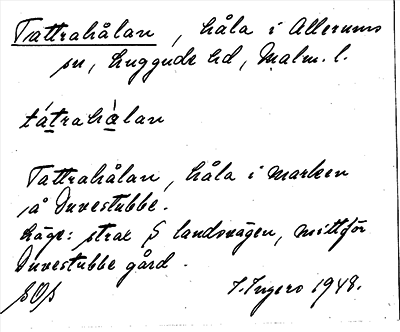 Tattrahålan, håla i Allerums
sn, Luggude hd, Malm. l.
tátrahòlan
Tattrahålan, håla i marken
på Duvestubbe.
Läge: strax S landsvägen, mittför
Duvestubbe gård.
1948.